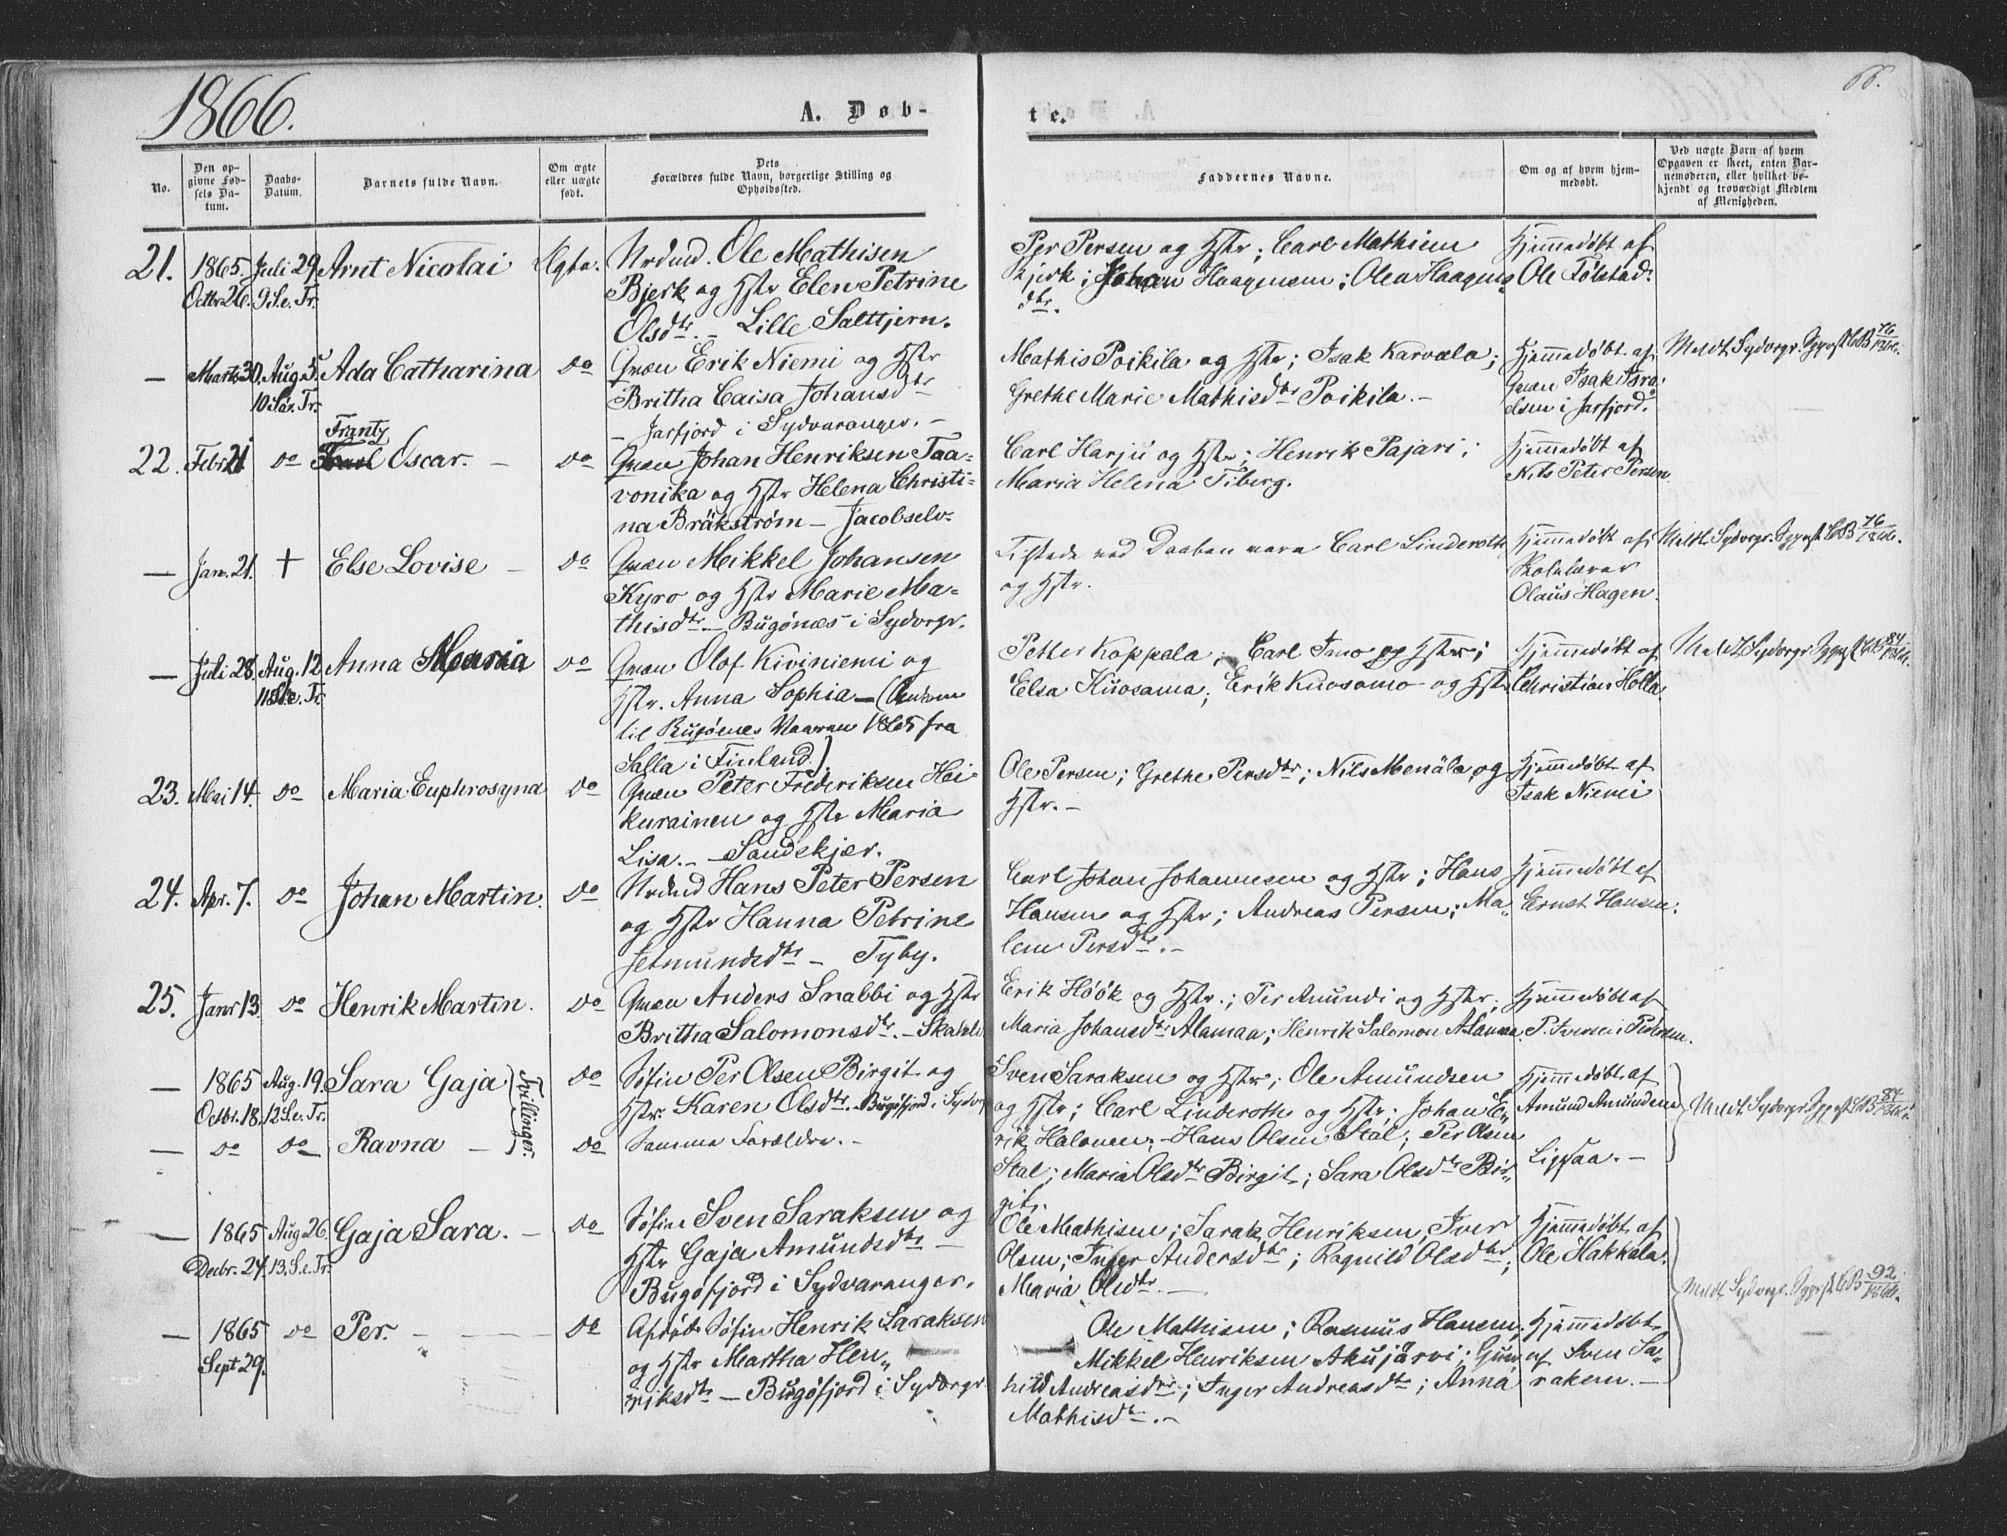 1866.
A. Døb-
te.
66.
No.
Den op-
givne Fød-
sels Da-
tum.
Daabs-
Datum.
Barnets fulde Navn.
Om ægte
eller uægte
født.
Dets
Forældres fulde Navn, borgerlige Stilling og
Opholdssted.
Faddernes Navne.
Om og af hvem hjem-
medøbt.
Ved uægte Barn af hvem
Opgaven er skeet, enten Bar-
nemoderen, eller hvilket be-
kjendt og troværdigt Medlem
af Menigheden.
21. 1865. Juli 29 Arnt Nicolai Ægte. Nrdmd. Ole Mathisen
Octbr 26. 9 S.e. Tr. Bjerk og Hstr Elen Petrine
Olsdtr. - Lille Salttjern.
Per Persen og Hstr; Carl Mathisen
Bjerk; Johan Haagensen; Olea Haagens
dtr.
Hjemmedøbt af
Ole Tølstad.
— Marts 30. Aug. 5. Ada Catharina do Qvæn Erik Niemi og Hstr
10 S.e. Tr. Britha Caisa Johansdtr
- Jarfjord i Sydvaranger. -
Mathis Poikila og Hstr; Isak Karvala;
Grethe Marie Mathisdtr Poikila. -
Hjemmedøbt af
Qvæn Isak Isra-
elsen i Jarfjord.
Meldt Sydvrgr. Sgpræst CB 76/1866.
Frantz
22. Febr 21 do Carl Oscar. - do Qvæn Johan Henriksen Taa-
vonika og Hstr Helena Christi-
na Bräkström - Jacobselv-
Carl Harju og Hstr; Henrik Pajari;
Maria Helena Tiberg.
Hjemmedøbt af
Nils Peter Persen
— Jan. 21. + Else Lovise - do Qvæn Mikkel Johansen
Kyro og Hstr Marie Ma-
thisdtr - Bugønes i Sydvrgr.
Tilstede ved Daaben vare Carl Linderoth
og Hstr.
Hjemmedøbt af
Skolelærer
Olaus Hagen.
Meldt Sydvrgr. Sgpræst CB 76/1866.
— Juli 28. Aug. 12 Anna Maria do Qvæn Olof Kiviniemi og
11 S.e. Tr. Hstr. Anna Sophia - (Ankom
til Bugønes Vaaren 1865 fra
Salla i Finland).
Petter Koppala; Carl Imo og Hstr;
Elsa Kuosama; Erik Kuosamo og Hstr
Hjemmedøbt af
Christian Holla.
Meldt Sydvrgr. Sgpræst CB 84/1866.
23. Mai 14. do Maria Euphrosyna do Qvæn Peter Frederiksen Hei
kurainen og Hstr Maria
Lisa. - Sandskjær.
Ole Persen; Grethe Persdtr; Nils Menäla og
Hstr. -
Hjemmedøbt af
Isak Niemi
24. Apr. 7. do Johan Martin. do Nrdmd Hans Peter Persen
og Hstr Hanna Petrine
Jetmundsdtr - Tyby.
Carl Johan Johannesen og Hstr; Hans
Hansen og Hstr; Andreas Persen; Ma-
lene Persdtr. -
Hjemmedøbt af
Ernst Hansen.
25. Janr 13. do Henrik Martin. do Qvæn Anders Snabbi og Hstr
Britha Salomonsdtr. -
Erik Höök og Hstr.; Per Amundi og Hstr;
Maria Johansdtr Alamaa; Henrik Salomon Alamaa.
Hjemmedøbt af
P. Iversen
— 1865 Aug. 19. Sara Gaja Tvillinger. do Søfin Per Olsen Birgit og
Octbr. 18. 12 S.e. Tr. Hstr. Karen Olsdtr. Bugøfjord i Sydvr
— do do Ravna - do Samme Forældre. -
Sven Saraksen og Hstr; Ole Amundsen
og Hstr; Carl Linderoth og Hstr; Johan E-
rik Halonen; - Hans Olsen Stal; Per Olsen
Stal; Maria Olsdtr Birgit; Sara Olsdtr Bir-
git.
Hjemmedøbt af
Amund Amundsen
Lipsaa. -
Meldt Sydvrgr. Sgpræst CB 84/1866.
— 1865 Aug 26. Gaja Sara. - do Søfin Sven Saraksen og
Decbr. 24. 13. S.e. Tr. Hstr Gaja Amundsdtr -
Bugøfjord i Sydvaranger.
Ole Mathisen; Sarak Henriksen; Iver
Olsen; Inger Andersdtr; Ragnild Olsdtr;
Maria Olsdtr. -
Hjemmedøbt af
Ole Hakkala.
Meldt Sydvrgr. Sgpræst CB 92/1866.
— 1865 do Per. - do Afdøde Søfin Henrik Saraksen
Sept 29. og Hstr Martha Hen-
riksdtr - Bugøfjord i Sydvrgr
Ole Mathisen; Rasmus Hansen;
Mikkel Henriksen Akujärvi; Gun-
hild Andreasdtr; Inger Andreasdtr; Anna
Mathisdtr. -
Hjemmedøbt
af Sven Sa-
raksen. -